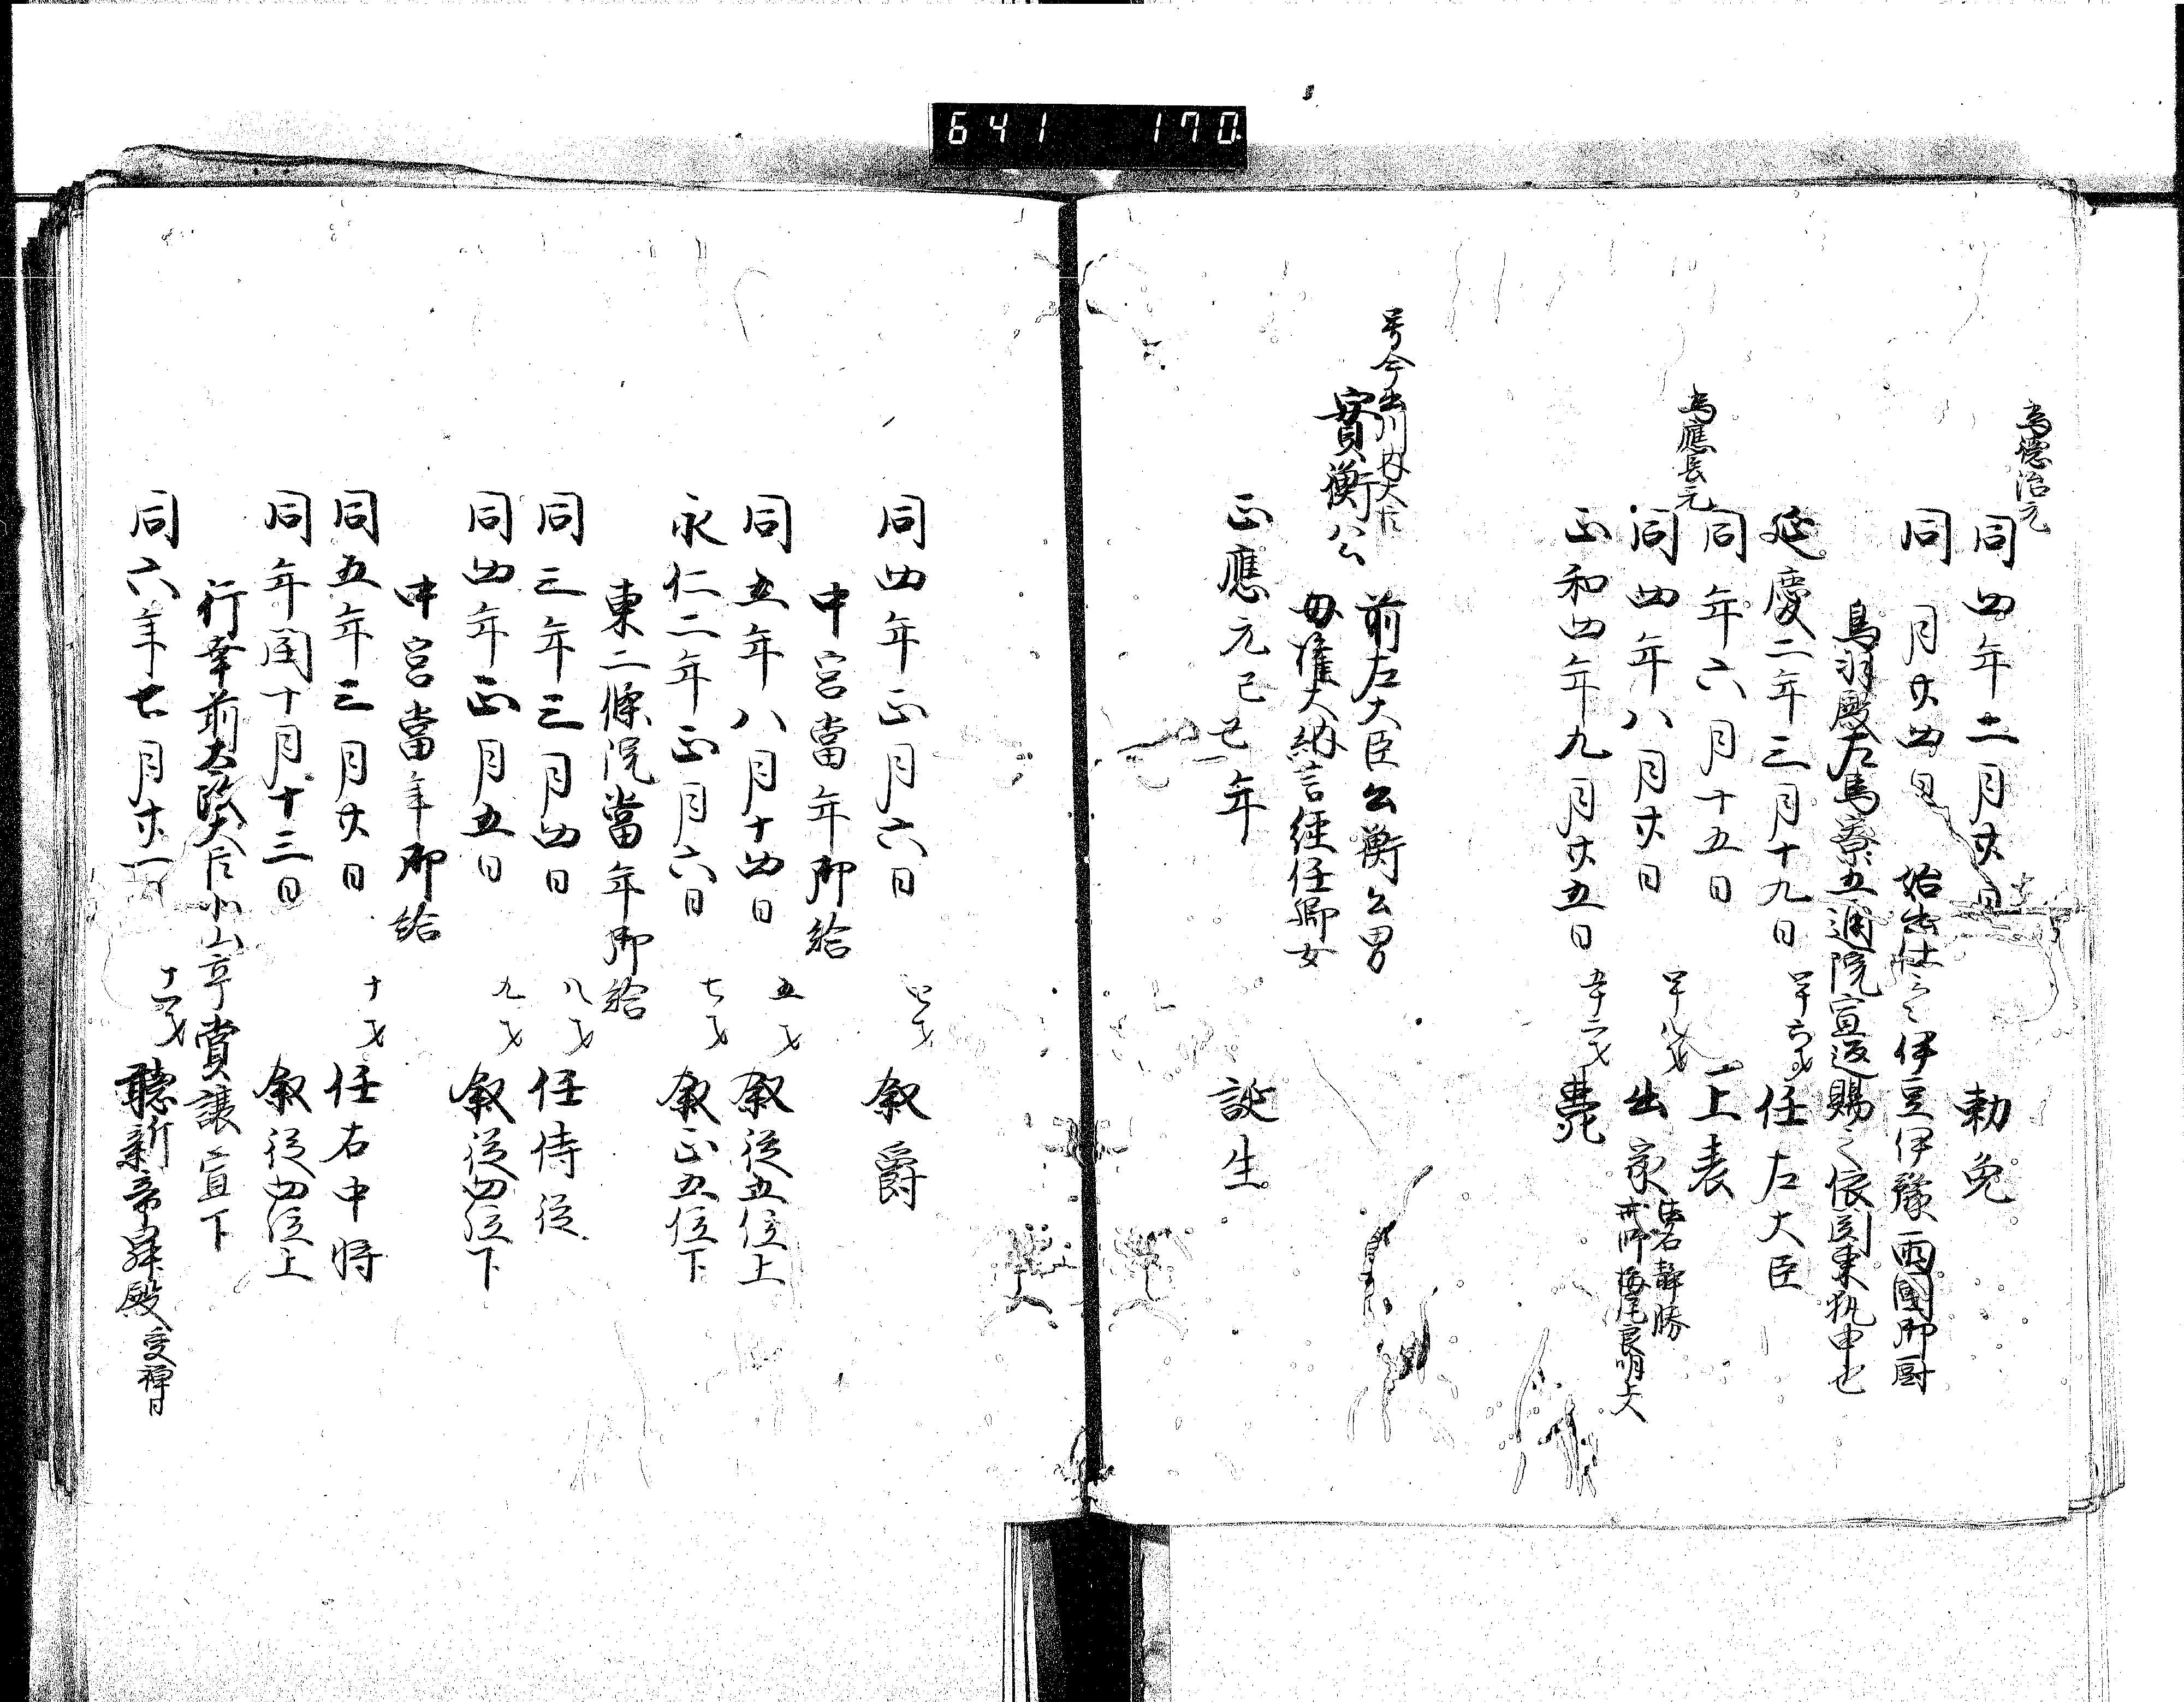 641 170
為徳治元
同四年十二月廿日 勅免
同 月廿四日 始出仕之伊豆伊豫両國御厨
鳥羽殿左馬寮五通院宣返賜之依関東執申也
延慶二年三月十九日 四十六才 任左大臣
同年六月十五日 上表
為應長元
同四年八月廿日 四十八才 出家 法名静勝
戒師 良明上人
正和四年九月廿五日 五十二才 薨
号今出川内大臣
實衡公 前左大臣公衡公男
母権大納言経任卿女
正應元己丑年 誕生
同四年正月六日 叙爵
中宮當年御給
同五年八月十四日 五才 叙従五位上
永仁二年正月六日 七才 叙正五位下
東二條院當年御給
同三年三月四日 八才 任侍従
同四年正月五日 九才 叙従四位下
中宮當年御給
同五年三月廿日 十才 任右中将
同年閏十月十三日 叙従四位上
行幸前太政大臣北山亭賞譲宣下
同六年七月廿二日 十一才 聴新帝昇殿 受禅日